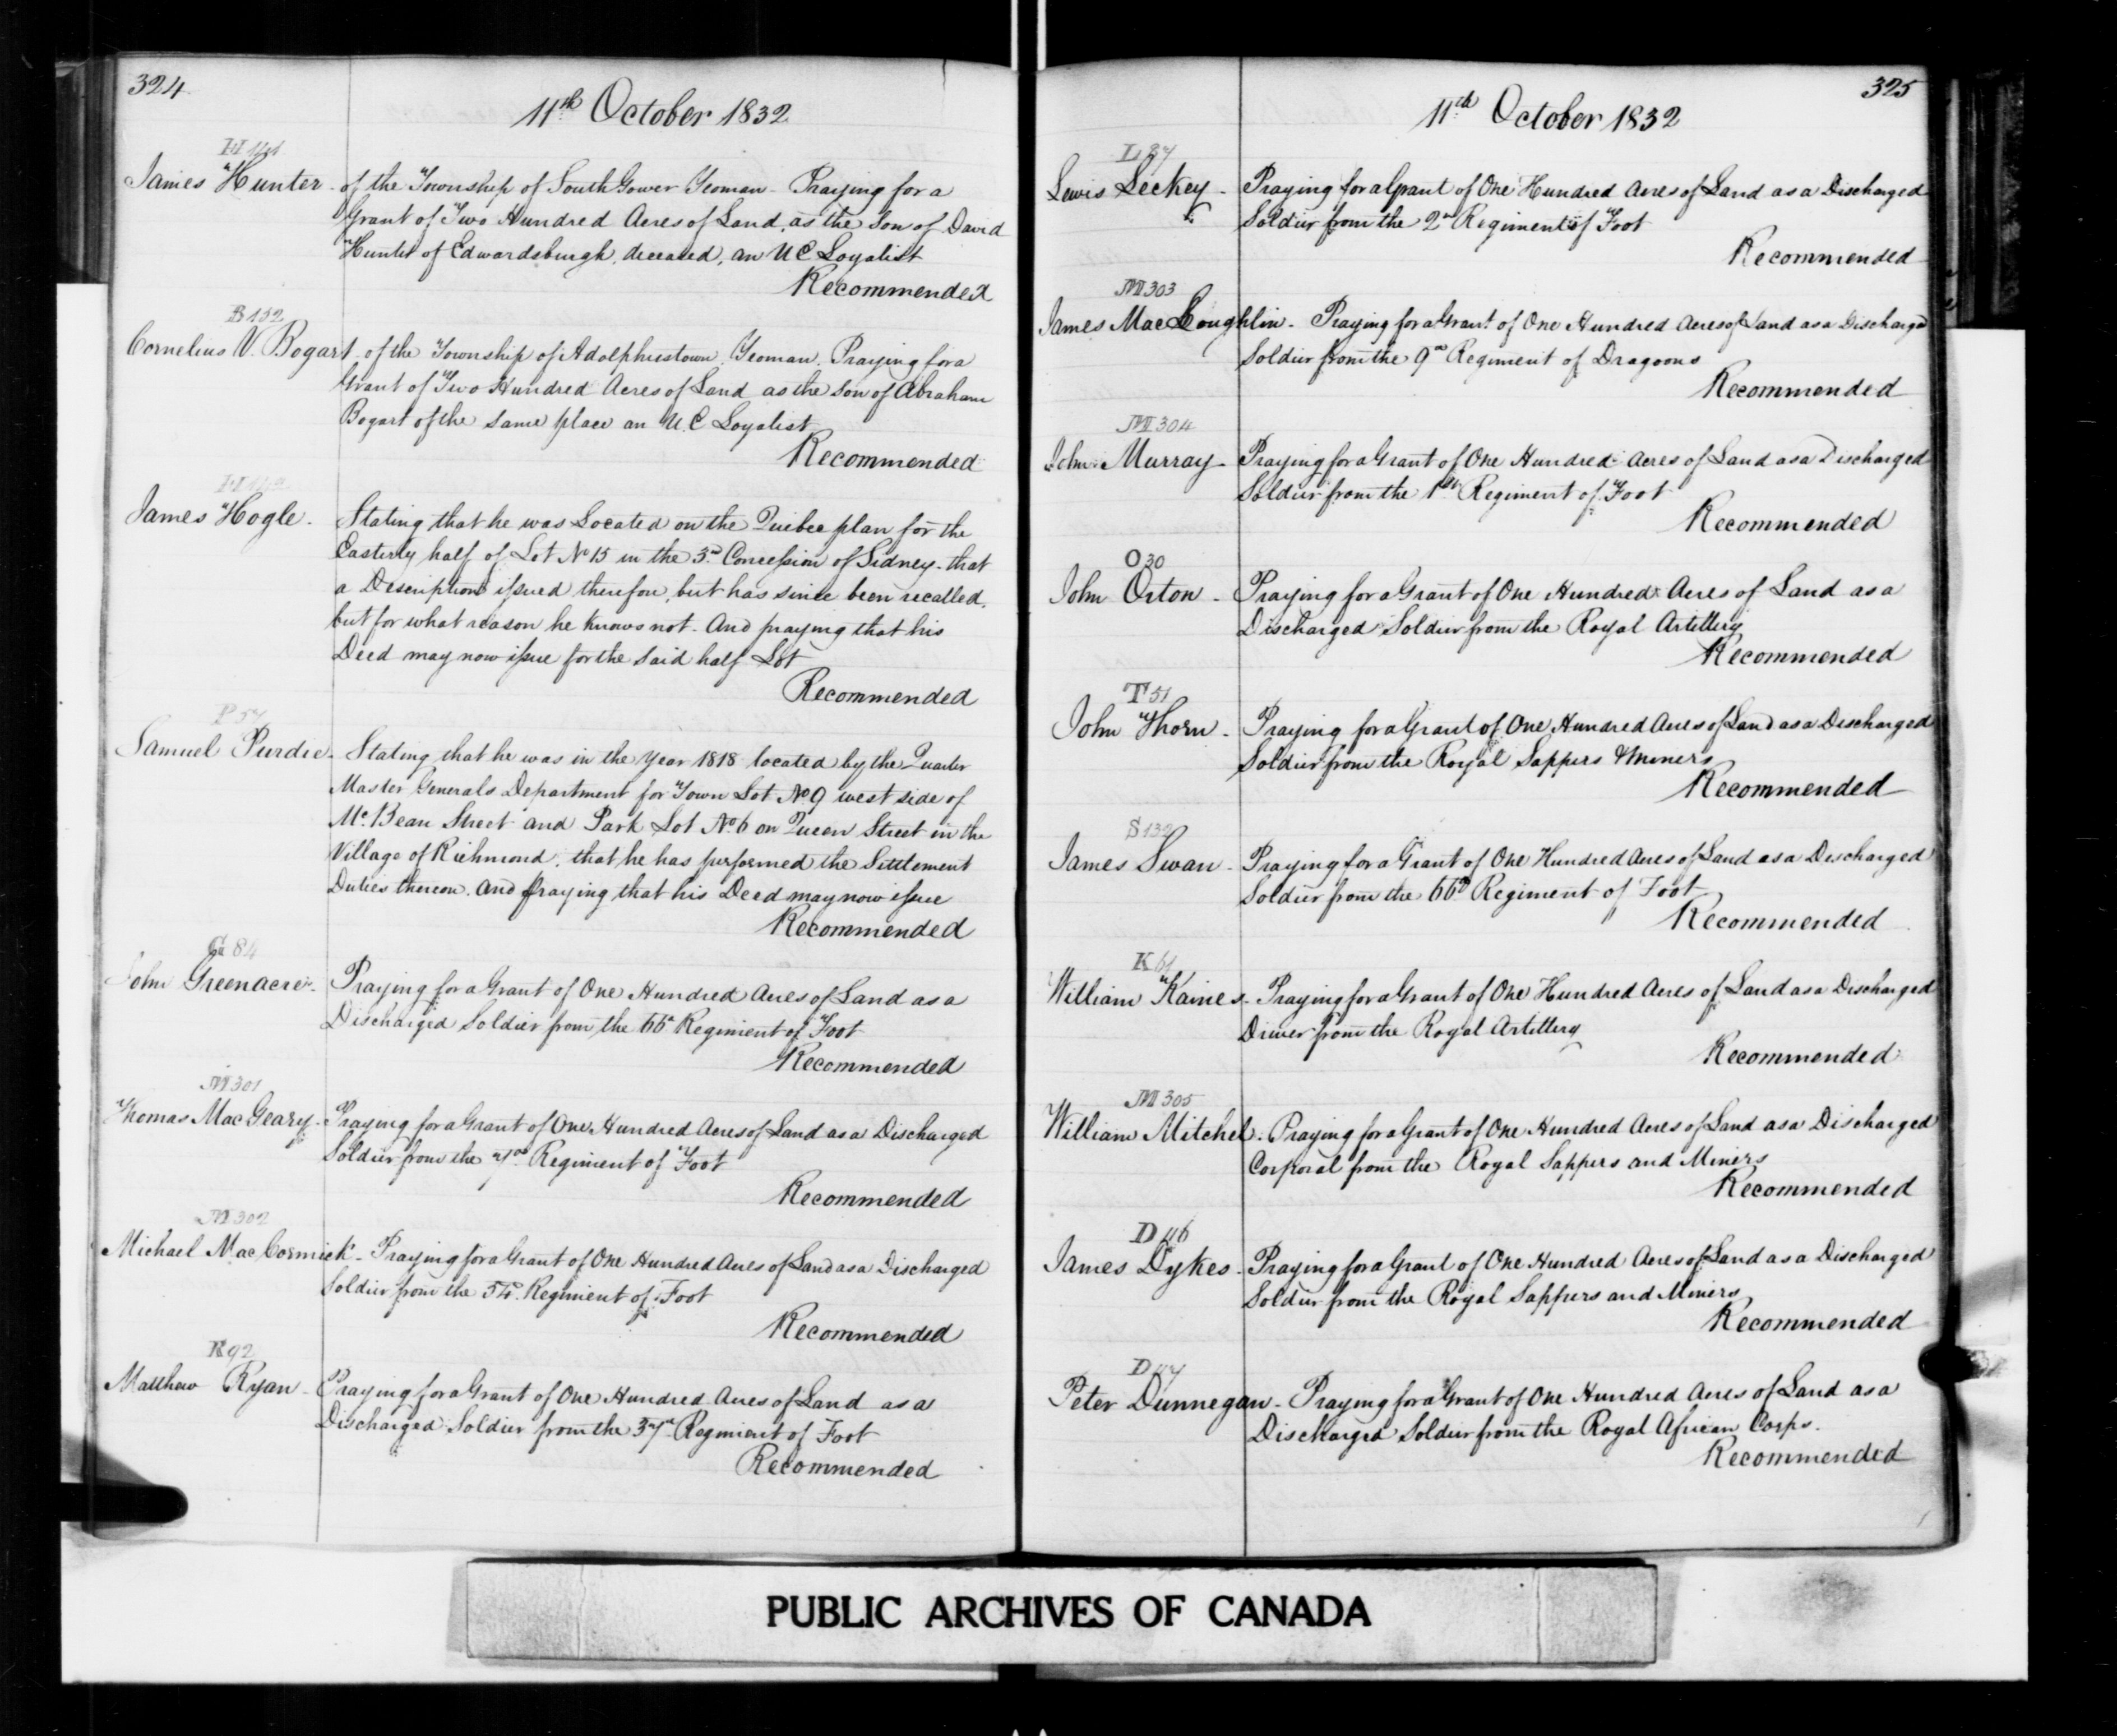 324
11th October 1832
H 141
James Hunter - of the Township of South Gower Yeoman - Praying for a
Grant of Two Hundred Acres of Land, as the Son of David
Hunter of Edwardsburgh, deceased, an U E Loyalist
Recommended
B 152
Cornelius V. Bogart, of the Township of Adolphustown, Yeoman, Praying for a
Grant of Two Hundred Acres of Land as the Son of Abraham
Bogart of the same place an U. E Loyalist
Recommended
H 142
James Hogle - Stating that he was Located on the Quebec plan for the
Easterly half of Lot No 15 in the 3d Concession of Sidney - that
a Description issued therefor, but has since been recalled,
but for what reason he knows not - And praying that his
Deed may now issue for the said half Lot
Recommended
P 57
Samuel Purdie - Stating that he was in the year 1818 located by the Quarter
Master Generals Department for Town Lot No 9 west side of
Mc.Bean Street and Park Lot No 6 on Queen Street in the
Village of Richmond, that he has performed the Settlement
Duties thereon. And praying that his Deed may now issue
Recommended
G 84
John Greenacre - Praying for a Grant of One Hundred Acres of Land as a
Discharged Soldier from the 66th Regiment of Foot
Recommended
M 301
Thomas MacGeary - Praying for a Grant of One Hundred Acres of Land as a Discharged
Soldier from the 7th Regiment of Foot
Recommended
M 302
Michael MacCormick - Praying for a Grant of One Hundred Acres of Land as a Discharged
Soldier from the Regiment of Foot
Recommended
R 92
Matthew Ryan - Praying for a Grant of One Hundred Acres of Land as a
Discharged Soldier from the 37th Regiment of Foot
Recommended
325
11th October 1832
L 87
Lewis Leckey - Praying for a Grant of One Hundred Acres of Land as a Discharged
Soldier from the 2d Regiment of Foot
Recommended
M 303
James MacLoughlin - Praying for a Grant of One Hundred Acres of Land as a Discharged
Soldier from the 9th Regiment of Dragoons
Recommended
M 304
John Murray - Praying for a Grant of One Hundred Acres of Land as a Discharged
Soldier from the 1st Regiment of Foot
Recommended
O 30
John Orton - Praying for a Grant of One Hundred Acres of Land as a
Discharged Soldier from the Royal Artillery
Recommended
T 51
John Thorn - Praying for a Grant of One Hundred Acres of Land as a Discharged
Soldier from the Royal Sappers & Miners
Recommended
S 132
James Swan - Praying for a Grant of One Hundred Acres of Land as a Discharged
Soldier from the 66th Regiment of Foot
Recommended
K 61
William Kaines - Praying for a Grant of One Hundred Acres of Land as a Discharged
Driver from the Royal Artillery
Recommended
M 305
William Mitchel - Praying for a Grant of One Hundred Acres of Land as a Discharged
Corporal from the Royal Sappers and Miners
Recommended
D 116
James Dykes - Praying for a Grant of One Hundred Acres of Land as a Discharged
Soldier from the Royal Sappers and Miners
Recommended
D 117
Peter Dunnegan - Praying for a Grant of One Hundred Acres of Land as a
Discharged Soldier from the Royal African Corps.
Recommended
PUBLIC ARCHIVES OF CANADA